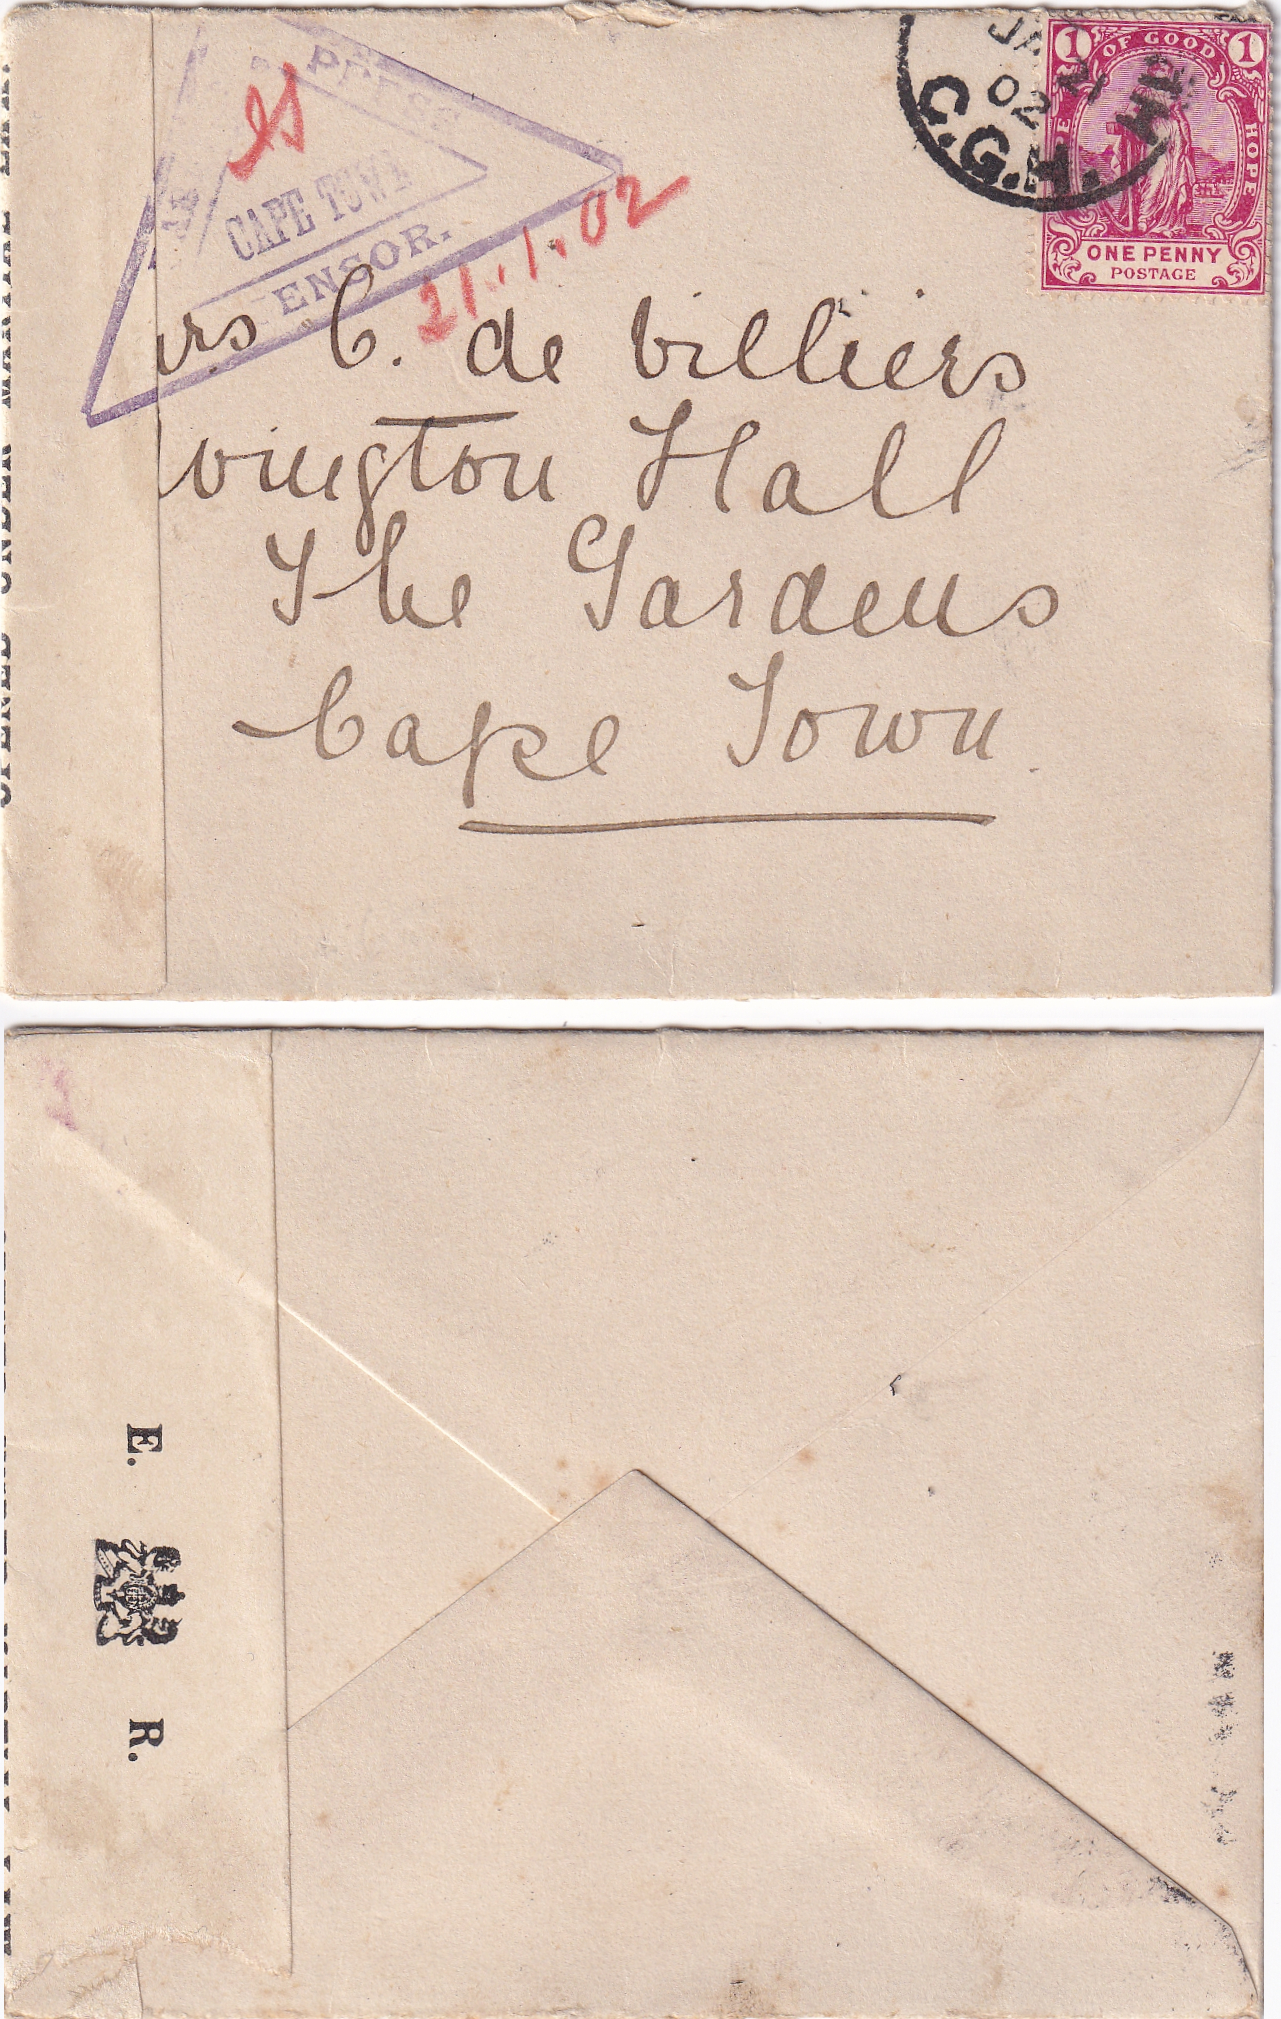 PRESS
CAPE TOWN
ENSOR.
21.1.02
JA
02
C.G.H.
1 OF GOOD 1
HOPE
ONE PENNY
POSTAGE
rs C. de Villiers
vington Hall
The Gardens
Cape Town.
OPENED UNDER MARTIAL LAW.
E. R.